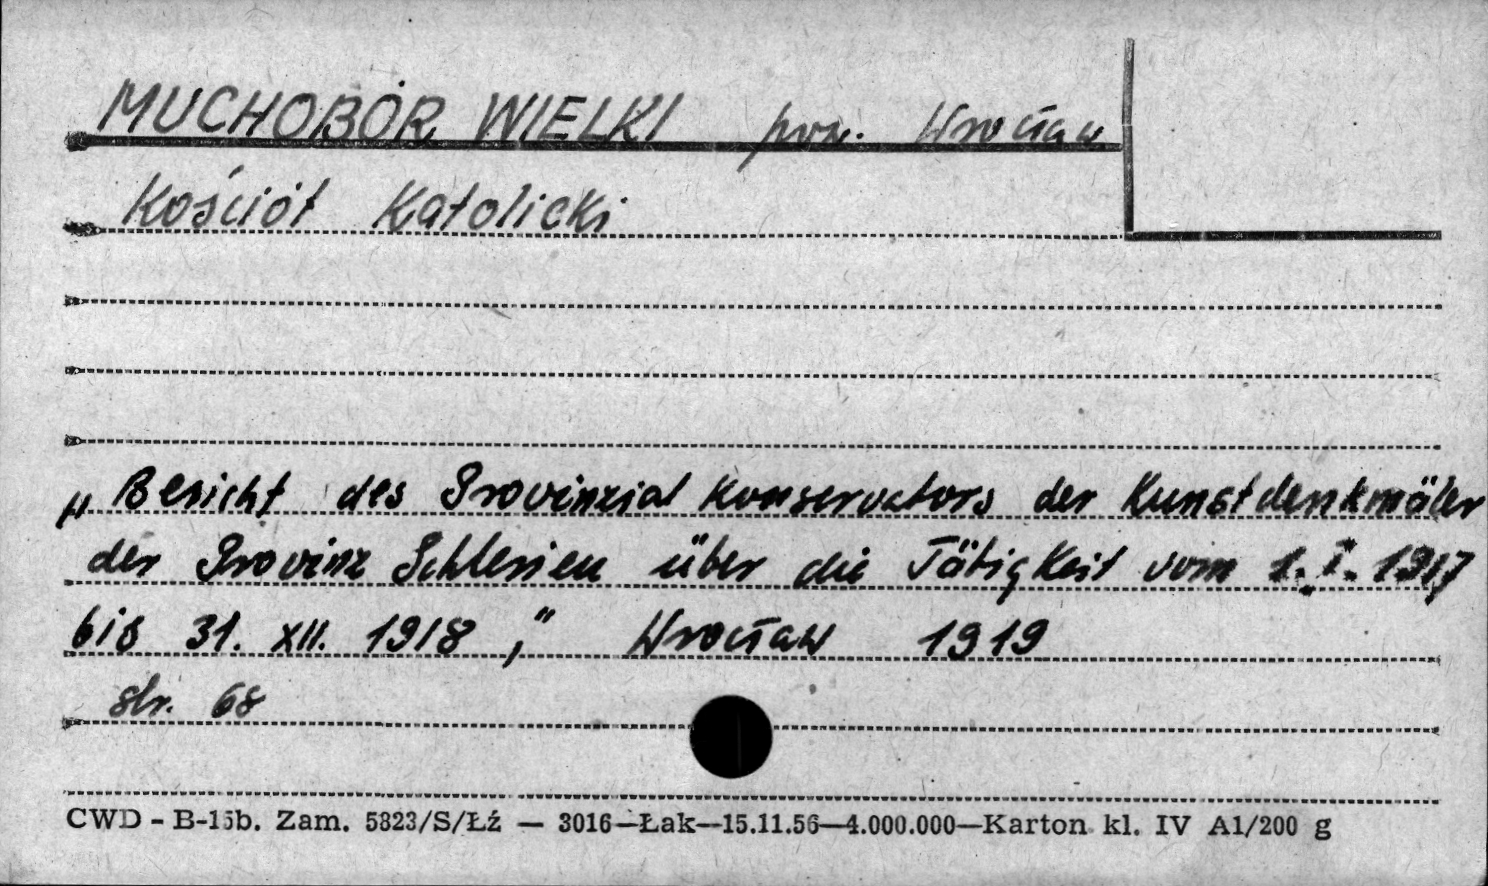 MUCHOBÓR WIELKI pow. Wrocław
Kościół Katolicki
„Bericht des Provinzial Konservators der Kunstdenkmäler
der Provinz Schlesien über die Tätigkeit vom 1. I. 1917
bis 31. XII. 1918," Wrocław 1919
str. 68
CWD - B-15b. Zam. 5823/S/Łź — 3016—Łak—15.11.56—4.000.000—Karton kl. IV A1/200 g